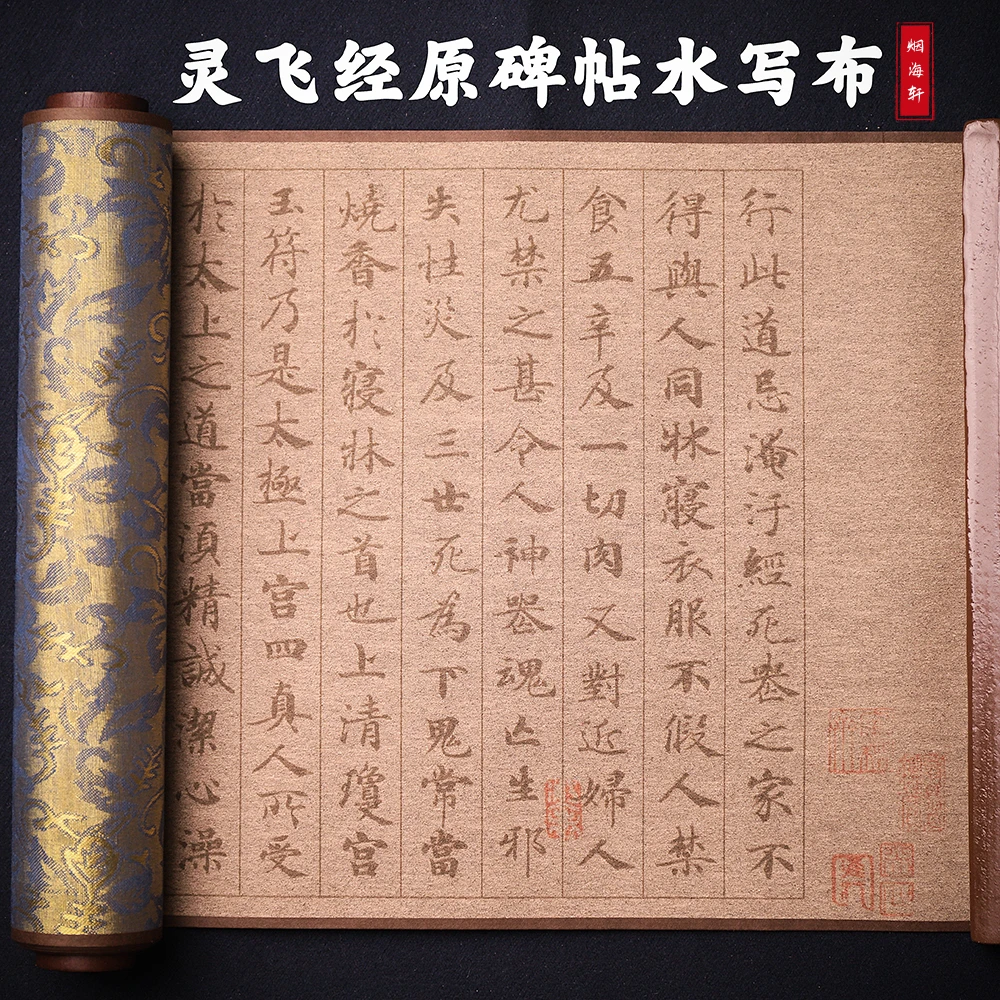 灵飞经原碑帖水写布
烟海轩
行此道忌淹汙經死䘮之家不
得與人同牀寢衣服不假人禁
食五辛及一切肉又對近婦人
尤禁之甚令人神器魂亾生邪
失性災及三世死為下鬼常當
燒香於寢牀之首也上清瓊宮
玉符乃是太極上宮四真人所受
於太上之道當須精誠潔心澡